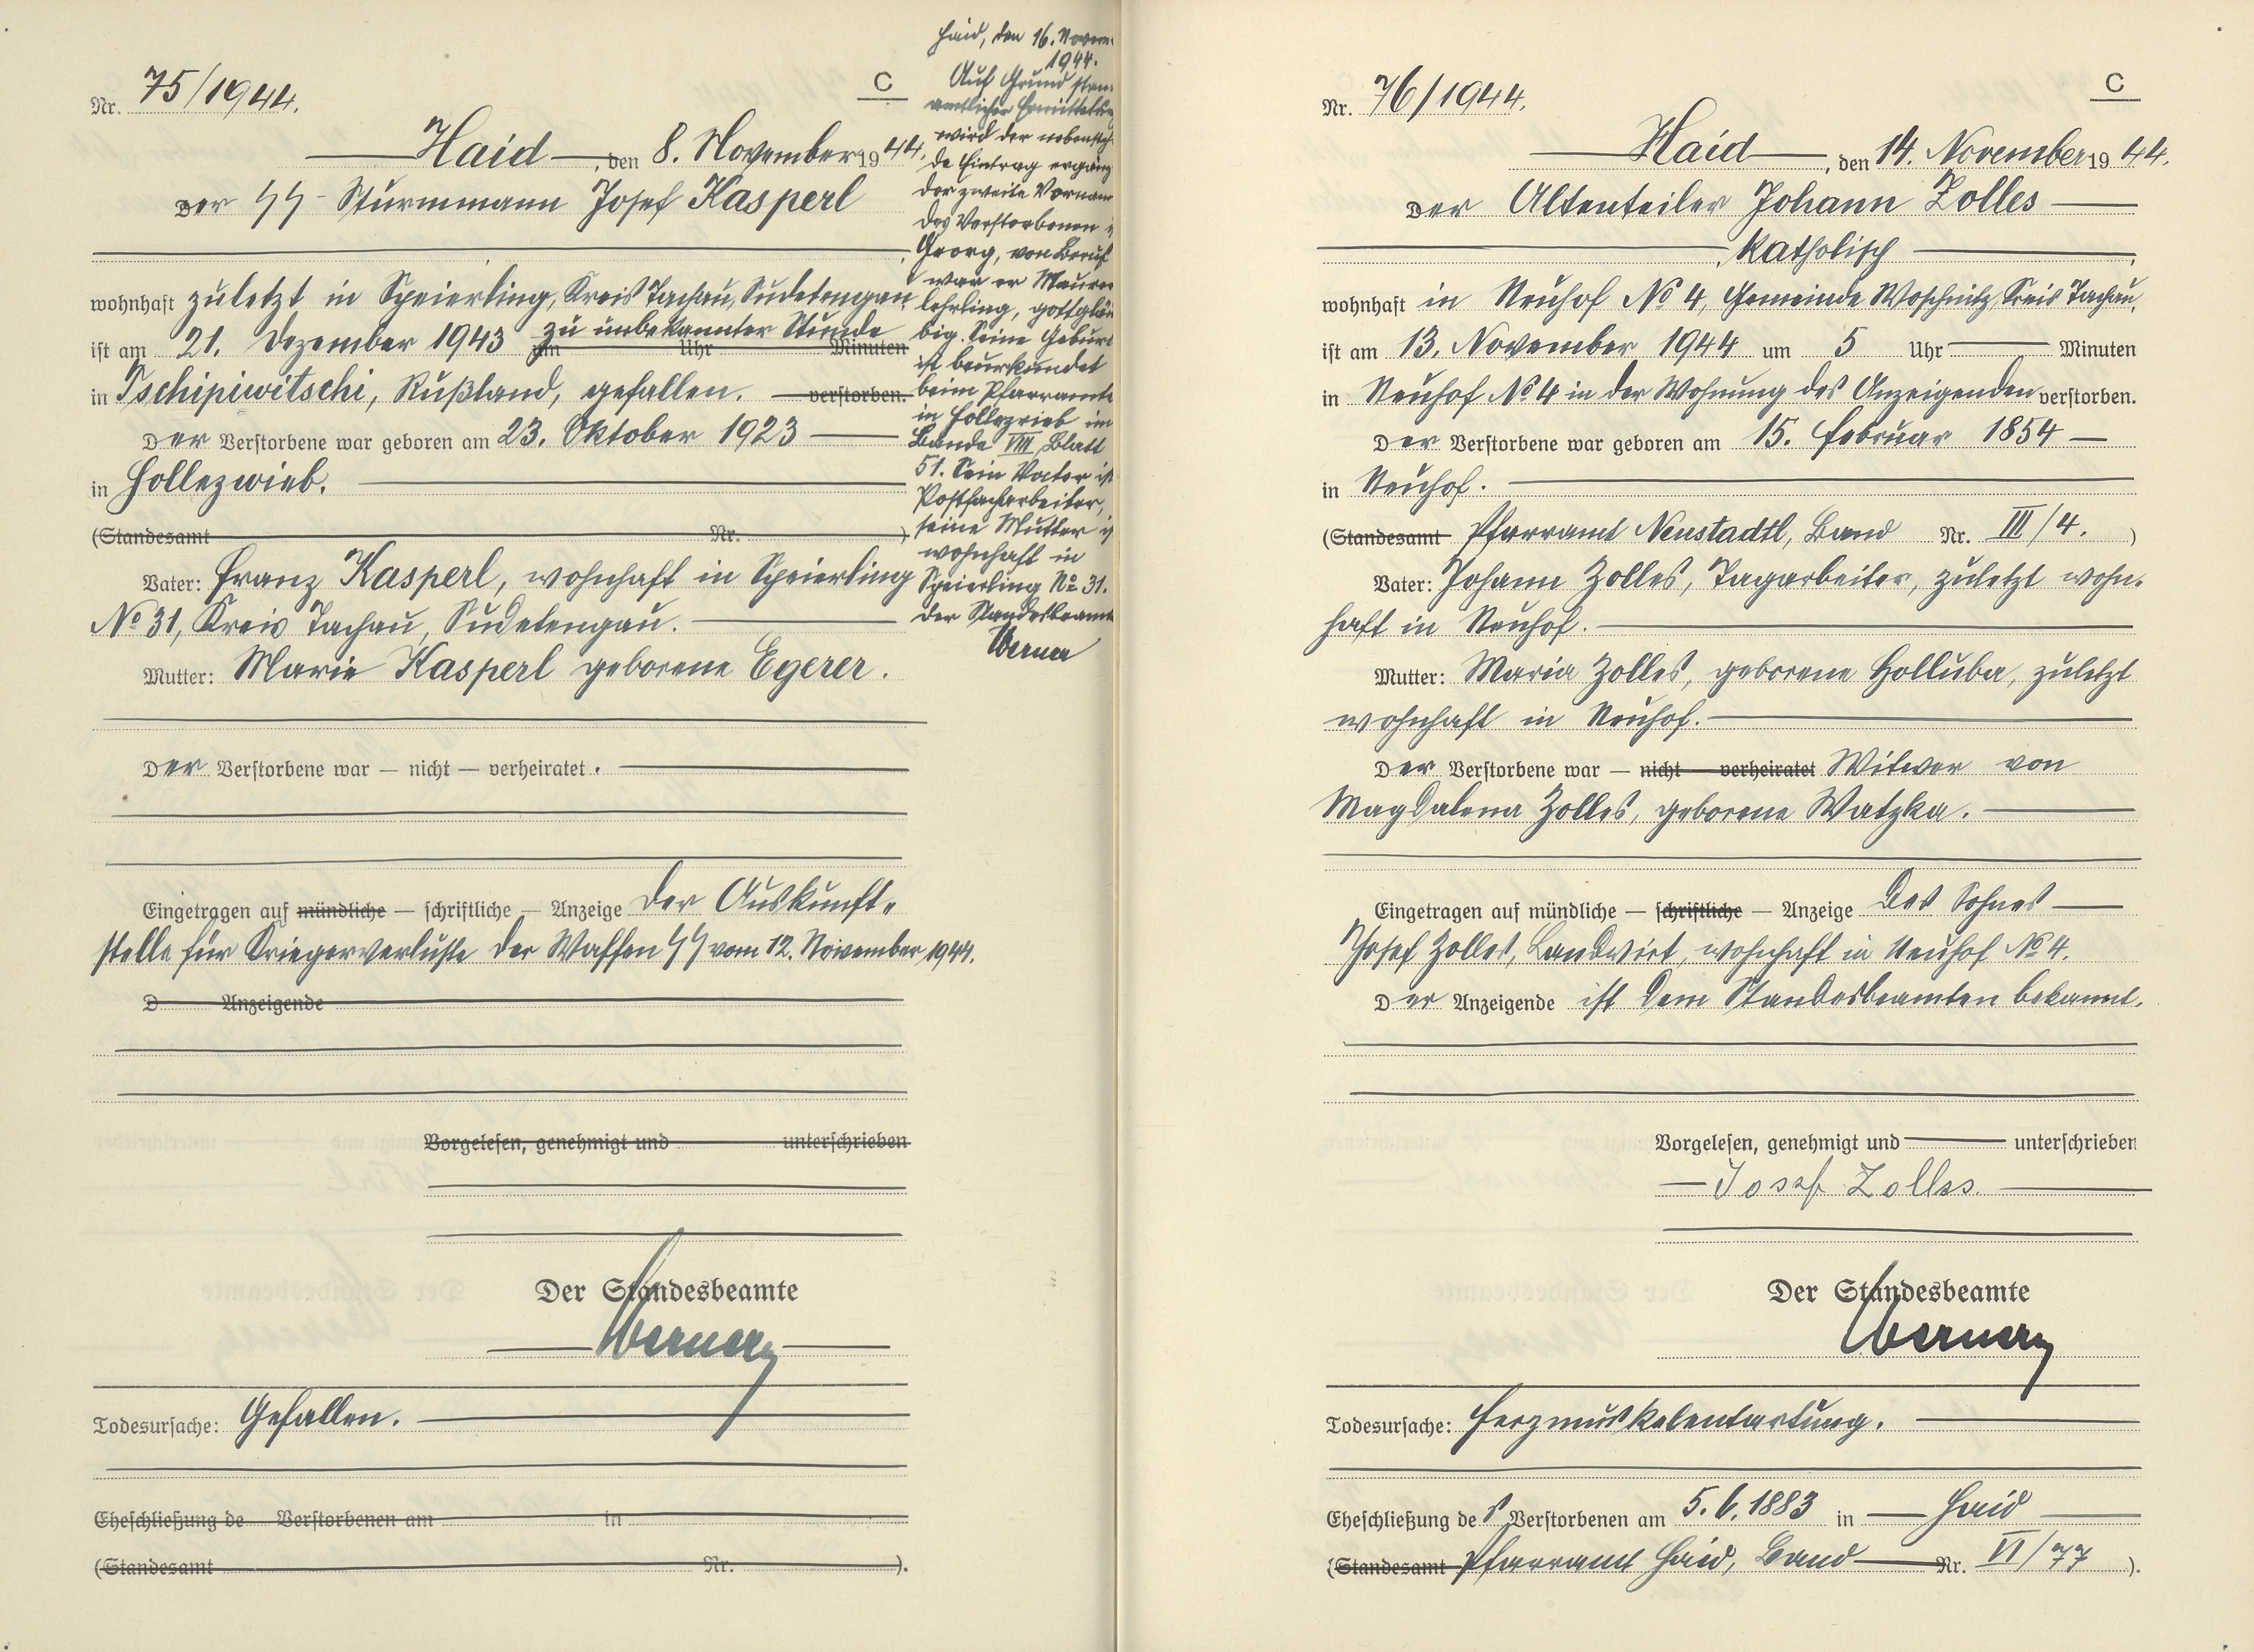 Nr. 75/1944.
C
Haid, den 8. November 1944.
Der SS-Sturmmann Josef Kasperl
wohnhaft zuletzt in Speierling, Kreis Tachau, Sudetengau,
ist am 21. Dezember 1943 zu unbekannter Stunde
um Uhr Minuten
in Tschipiwitschi, Rußland, gefallen. verstorben.
Der Verstorbene war geboren am 23. Oktober 1923
in Hollezrieb.
(Standesamt Nr. )
Vater: Franz Kasperl, wohnhaft in Speierling
No 31, Kreis Tachau, Sudetengau.
Mutter: Marie Kasperl geborene Egerer.
Der Verstorbene war — nicht — verheiratet.
Eingetragen auf mündliche — schriftliche — Anzeige der Auskunft-
stelle für Kriegerverluste der Waffen SS vom 12. November 1944.
D Anzeigende
Vorgelesen, genehmigt und unterschrieben
Der Standesbeamte
Werner
Todesursache: Gefallen.
Eheschließung de Verstorbenen am in
(Standesamt Nr. ).
Haid, den 16. Novem-
1944.
Auf Grund
amtlicher
wird der nebensteh-
de Eintrag ergänz
der zweite Vorname
des Verstorbenen
Georg, von Beruf
war er Maurer
lehrling, gottgläu
big. Seine Geburt
ist beurkundet
beim Pfarramte
in Hollezrieb im
Bande VIII, Blatt
51. Sein Vater ist
Postfacharbeiter,
seine Mutter
wohnhaft in
Speierling No 31.
Der Standesbeamte
Werner
Nr. 76/1944.
C
Haid, den 14. November 1944.
Der Altenteiler Johann Zolles
, katholisch ,
wohnhaft in Neuhof No 4, Gemeinde Woschnitz, Kreis Tachau,
ist am 13. November 1944 um 5 Uhr Minuten
in Neuhof No 4 in der Wohnung des Anzeigenden verstorben.
Der Verstorbene war geboren am 15. Februar 1854
in Neuhof.
(Standesamt Pfarramt Neustadtl, Band Nr. III/4. )
Vater: Johann Zolles, Tagarbeiter, zuletzt wohn-
haft in Neuhof.
Mutter: Maria Zolles, geborene Holluba, zuletzt
wohnhaft in Neuhof.
Der Verstorbene war — nicht — verheiratet Witwer von
Magdalena Zolles, geborene Watzka.
Eingetragen auf mündliche — schriftliche — Anzeige des Sohnes
Josef Zolles, Landwirt, wohnhaft in Neuhof No 4.
Der Anzeigende ist dem Standesbeamten bekannt.
Vorgelesen, genehmigt und unterschrieben
Josef Zolles.
Der Standesbeamte
Werner
Todesursache: Herzmuskelentartung.
Eheschließung des Verstorbenen am 5.6.1883 in Haid
(Standesamt Pfarramt Haid, Band Nr. VI/77 ).